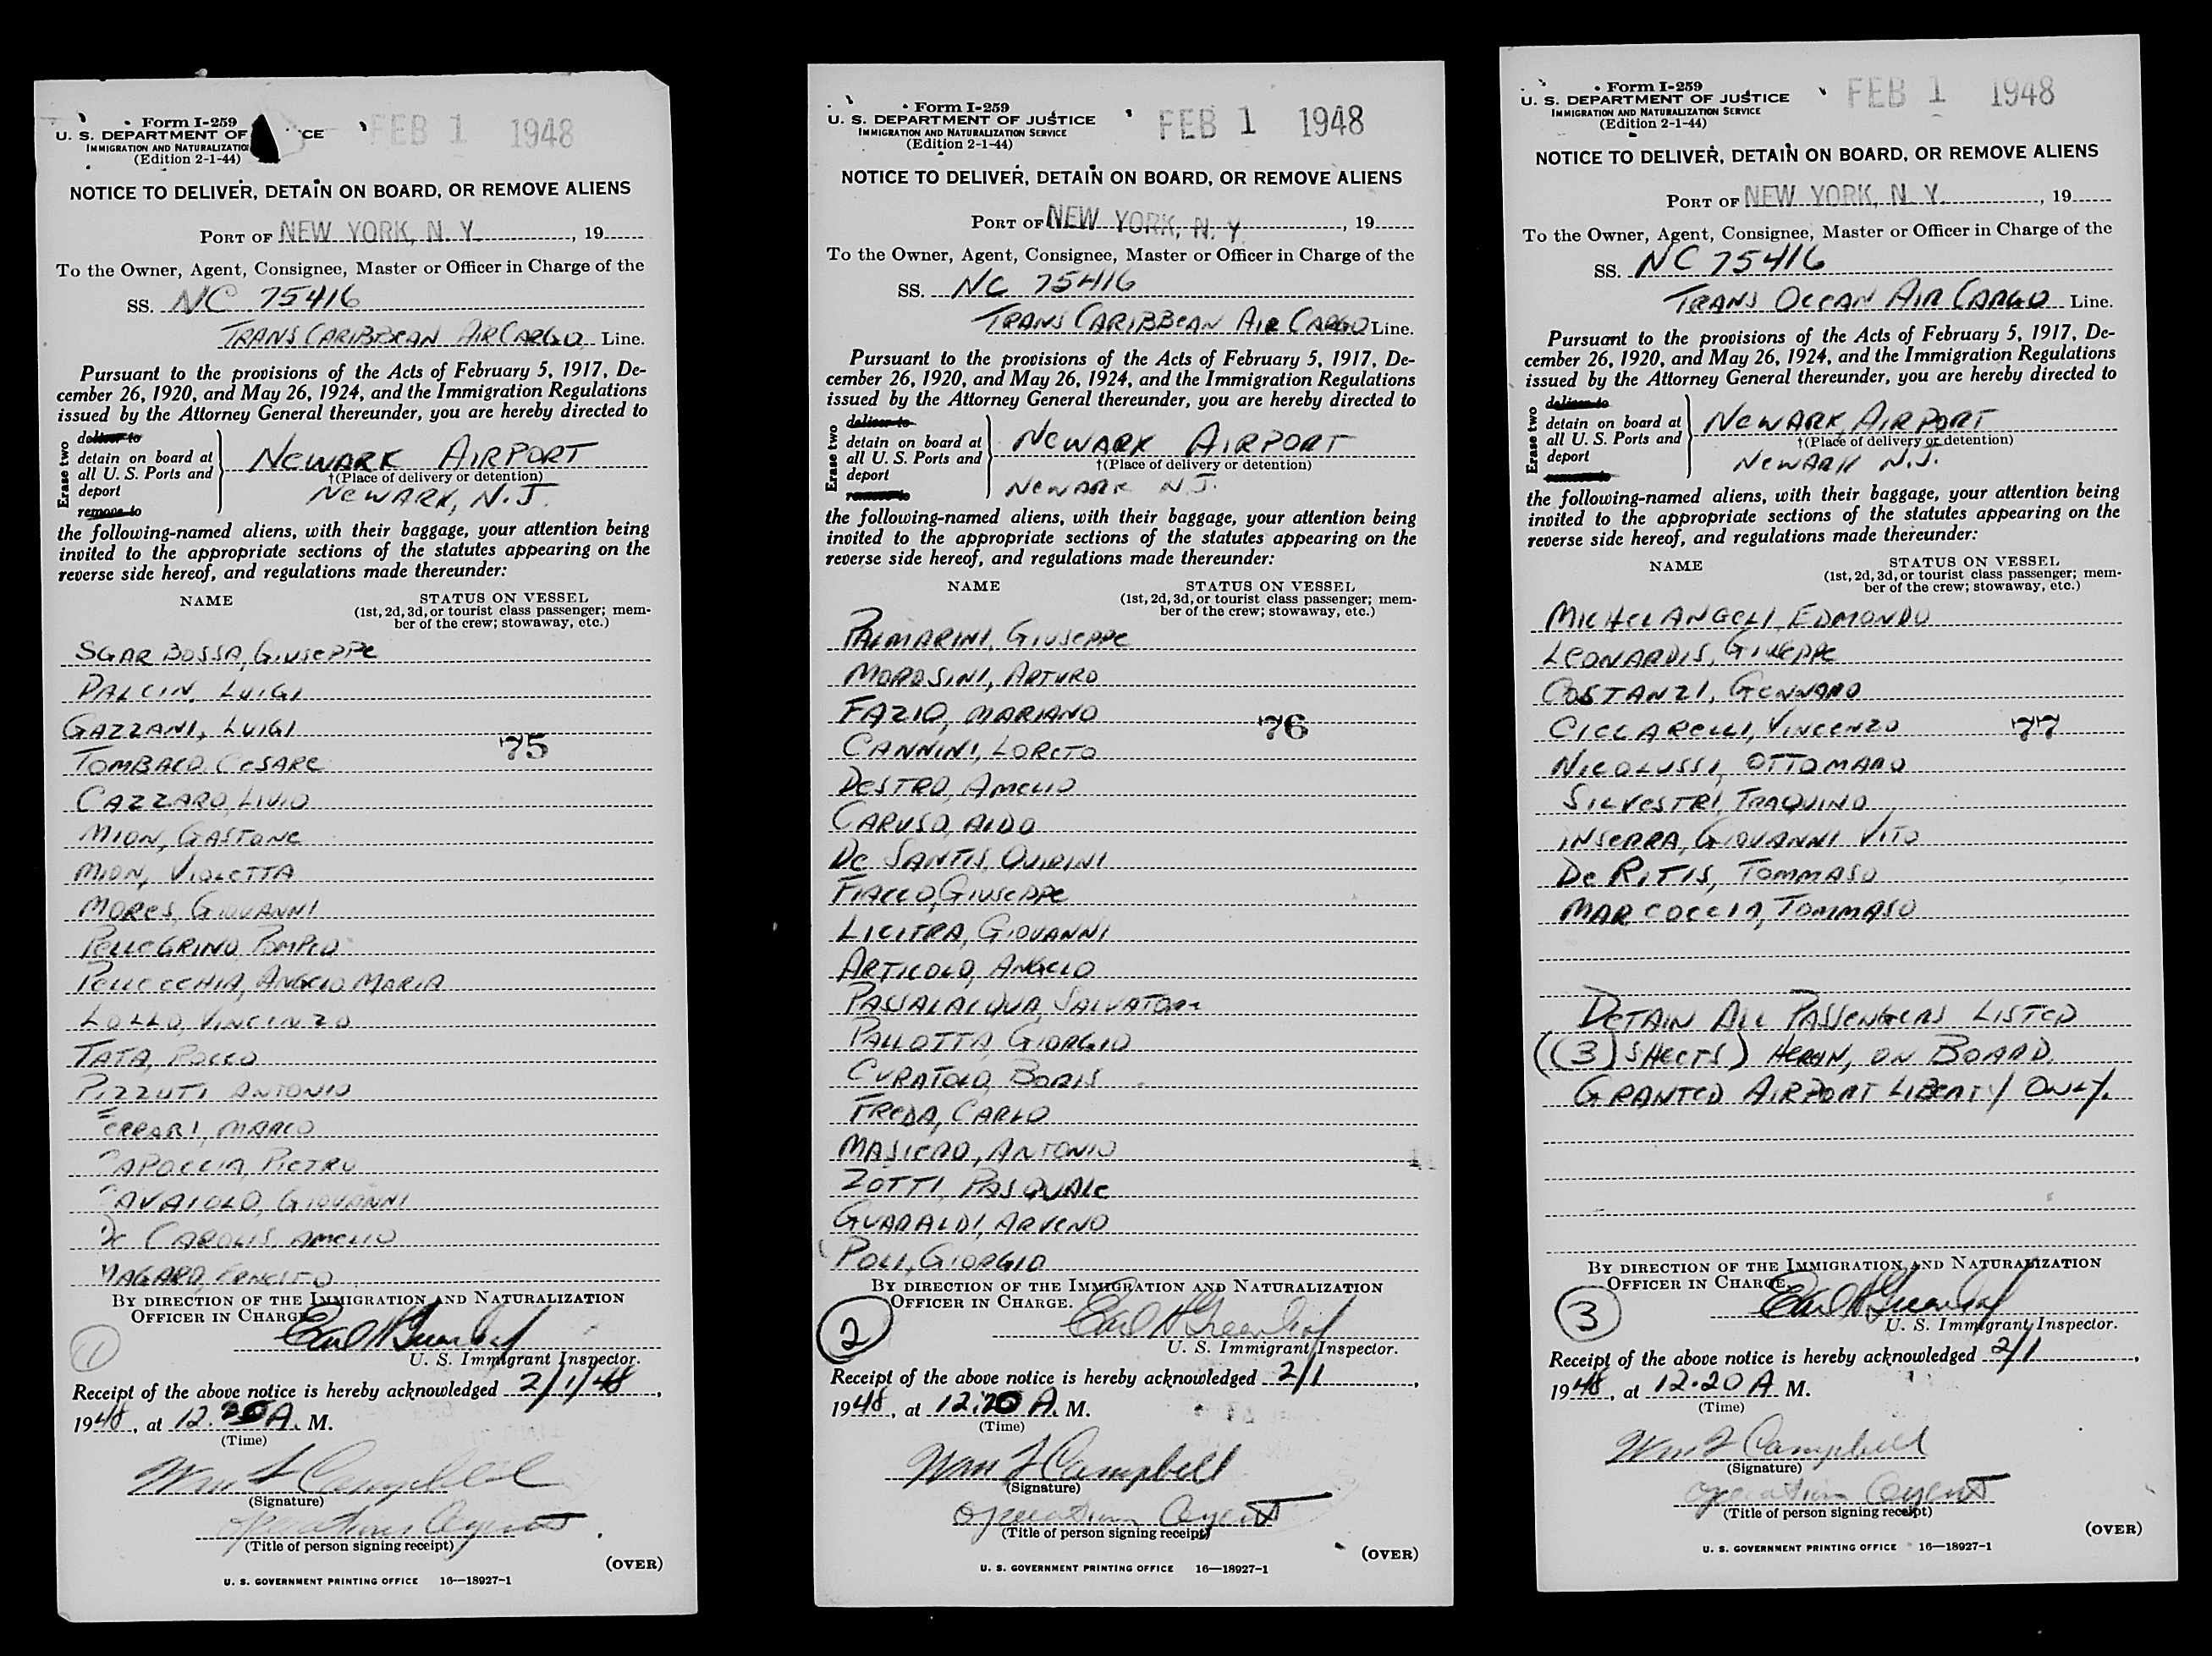 Form I-259
U. S. DEPARTMENT OF CE
IMMIGRATION AND NATURALIZATIO
(Edition 2-1-44)
FEB 1 1948
NOTICE TO DELIVER, DETAIN ON BOARD, OR REMOVE ALIENS
PORT OF NEW YORK, N. Y. , 19
To the Owner, Agent, Consignee, Master or Officer in Charge of the
SS. NC 75416
TRANS CARIBBEAN AIR CARGO Line.
Pursuant to the provisions of the Acts of February 5, 1917, De-
cember 26, 1920, and May 26, 1924, and the Immigration Regulations
issued by the Attorney General thereunder, you are hereby directed to
Erase two
deliver to
detain on board at
all U. S. Ports and
deport
remove to
NEWARK AIRPORT
†(Place of delivery or detention)
NEWARK, N.J.
the following-named aliens, with their baggage, your attention being
invited to the appropriate sections of the statutes appearing on the
reverse side hereof, and regulations made thereunder:
NAME STATUS ON VESSEL
(1st, 2d, 3d, or tourist class passenger; mem-
ber of the crew; stowaway, etc.)
SGARBOSSA, GIUSEPPE
DALCIN, LUIGI
GAZZANI, LUIGI
75
TOMBACO, CESARE
CAZZARO, LIVIO
MION, GASTONE
MION, VIOLETTA
MORES, GIOVANNI
PELLEGRINO POMPEO
PELLECCHIA, ANGELO MARIA
LOLLO, VINCINZO
TATA, ROCCO
PIZZUTI ANTONIO
FERRARI, MARCO
CAPOCCIA, PIETRO
CAVAIOLO, GIOVANNI
DE CAROLIS, AMELIO
MAGARO, ERNESTO
BY DIRECTION OF THE IMMIGRATION AND NATURALIZATION
OFFICER IN CHARGE
1
U. S. Immigrant Inspector.
Receipt of the above notice is hereby acknowledged 2/1/48,
1948, at 12.20 A. M.
(Time)
Wm F Campbell
(Signature)
Operations Agent
(Title of person signing receipt)
(OVER)
U. S. GOVERNMENT PRINTING OFFICE 16—18927-1
Form I-259
U. S. DEPARTMENT OF JUSTICE
IMMIGRATION AND NATURALIZATION SERVICE
(Edition 2-1-44)
FEB 1 1948
NOTICE TO DELIVER, DETAIN ON BOARD, OR REMOVE ALIENS
PORT OF NEW YORK, N. Y. , 19
To the Owner, Agent, Consignee, Master or Officer in Charge of the
SS. NC 75416
TRANS CARIBBEAN AIR CARGO Line.
Pursuant to the provisions of the Acts of February 5, 1917, De-
cember 26, 1920, and May 26, 1924, and the Immigration Regulations
issued by the Attorney General thereunder, you are hereby directed to
Erase two
deliver to
detain on board at
all U. S. Ports and
deport
remove to
NEWARK AIRPORT
†(Place of delivery or detention)
NEWARK N.J.
the following-named aliens, with their baggage, your attention being
invited to the appropriate sections of the statutes appearing on the
reverse side hereof, and regulations made thereunder:
NAME STATUS ON VESSEL
(1st, 2d, 3d, or tourist class passenger; mem-
ber of the crew; stowaway, etc.)
PALMARINI, GIUSEPPE
MOROSINI, ARTURO
FAZIO, MARIANO
76
CANNINI, LORETO
DESTRO, AMELIO
CARUSO, ALDO
DE SANTIS, QUIRINI
FIACCO, GIUSEPPE
LICITRA, GIOVANNI
ARTICOLO, ANGELO
PASSALACQUA, SALVATORE
PALLOTTA, GIORGIO
CURATOLO, BORIS
FREDA, CARLO
MASIERO, ANTONIO
ZOTTI, PASQUALE
GUARALDI, ARVENO
POLI, GIORGIO
BY DIRECTION OF THE IMMIGRATION AND NATURALIZATION
OFFICER IN CHARGE.
2
U. S. Immigrant Inspector.
Receipt of the above notice is hereby acknowledged 2/1,
1948, at 12.20 A. M.
(Time)
Wm F Campbell
(Signature)
Operations Agent
(Title of person signing receipt)
(OVER)
U. S. GOVERNMENT PRINTING OFFICE 16—18927-1
Form I-259
U. S. DEPARTMENT OF JUSTICE
IMMIGRATION AND NATURALIZATION SERVICE
(Edition 2-1-44)
FEB 1 1948
NOTICE TO DELIVER, DETAIN ON BOARD, OR REMOVE ALIENS
PORT OF NEW YORK, N. Y. , 19
To the Owner, Agent, Consignee, Master or Officer in Charge of the
SS. NC 75416
TRANS OCEAN AIR CARGO Line.
Pursuant to the provisions of the Acts of February 5, 1917, De-
cember 26, 1920, and May 26, 1924, and the Immigration Regulations
issued by the Attorney General thereunder, you are hereby directed to
Erase two
deliver to
detain on board at
all U. S. Ports and
deport
remove to
NEWARK AIRPORT
†(Place of delivery or detention)
NEWARK N.J.
the following-named aliens, with their baggage, your attention being
invited to the appropriate sections of the statutes appearing on the
reverse side hereof, and regulations made thereunder:
NAME STATUS ON VESSEL
(1st, 2d, 3d, or tourist class passenger; mem-
ber of the crew; stowaway, etc.)
MICHELANGELI, EDMONDO
LEONARDIS, GIUSEPPE
COSTANZI, GENNARO
CICCARELLI, VINCENZO 77
NICOLUSSI, OTTOMARO
SILVESTRI, TRAQUINO
INSERRA, GIOVANNI VITO
DE RITIS, TOMMASO
MARCOCCIA, TOMMASO
DETAIN ALL PASSENGERS LISTED
((3) SHEETS) HEREIN, ON BOARD.
GRANTED AIRPORT LIBERTY ONLY.
BY DIRECTION OF THE IMMIGRATION AND NATURALIZATION
OFFICER IN CHARGE
3
U. S. Immigrant Inspector.
Receipt of the above notice is hereby acknowledged 2/1,
1948, at 12.20 A M.
(Time)
Wm F Campbell
(Signature)
Operations Agent
(Title of person signing receipt)
(OVER)
U. S. GOVERNMENT PRINTING OFFICE 16—18927-1